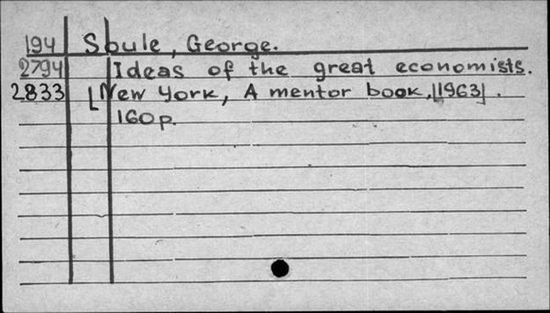 194 Soule, George.
2794 Ideas of the great economists.
2833 [New York, A mentor book, [1963].
160 p.